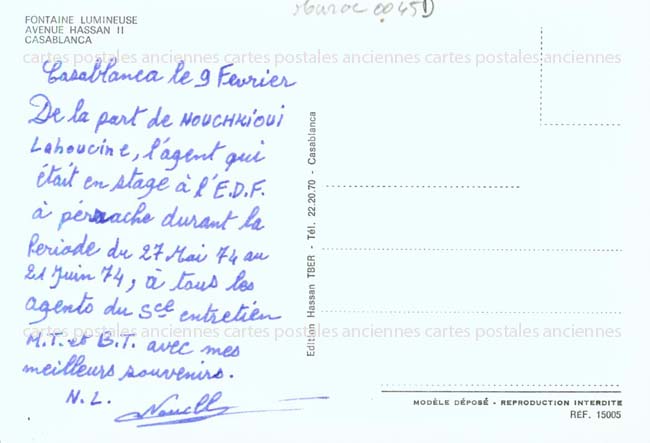 Maroc 0045D
FONTAINE LUMINEUSE
AVENUE HASSAN II
CASABLANCA
cartes postales anciennes cartes postales anciennes cartes postales anciennes
Casablanca le 9 Fevrier
De la part de NOUCHKIOUI
Lahoucine, l'agent qui
était en stage à l'E.D.F.
à pérrache durant la
Periode du 27 Mai 74 au
21 Juin 74, à tous les
agents du Sce entretien
cartes postales anciennes cartes postales anciennes cartes postales anciennes
M.T. et B.T. avec mes
meilleurs souvenirs.
N.L.
Edition Hassan TBER - Tél. 22.20.70 - Casablanca
MODÈLE DÉPOSÉ - REPRODUCTION INTERDITE
RÉF. 15005